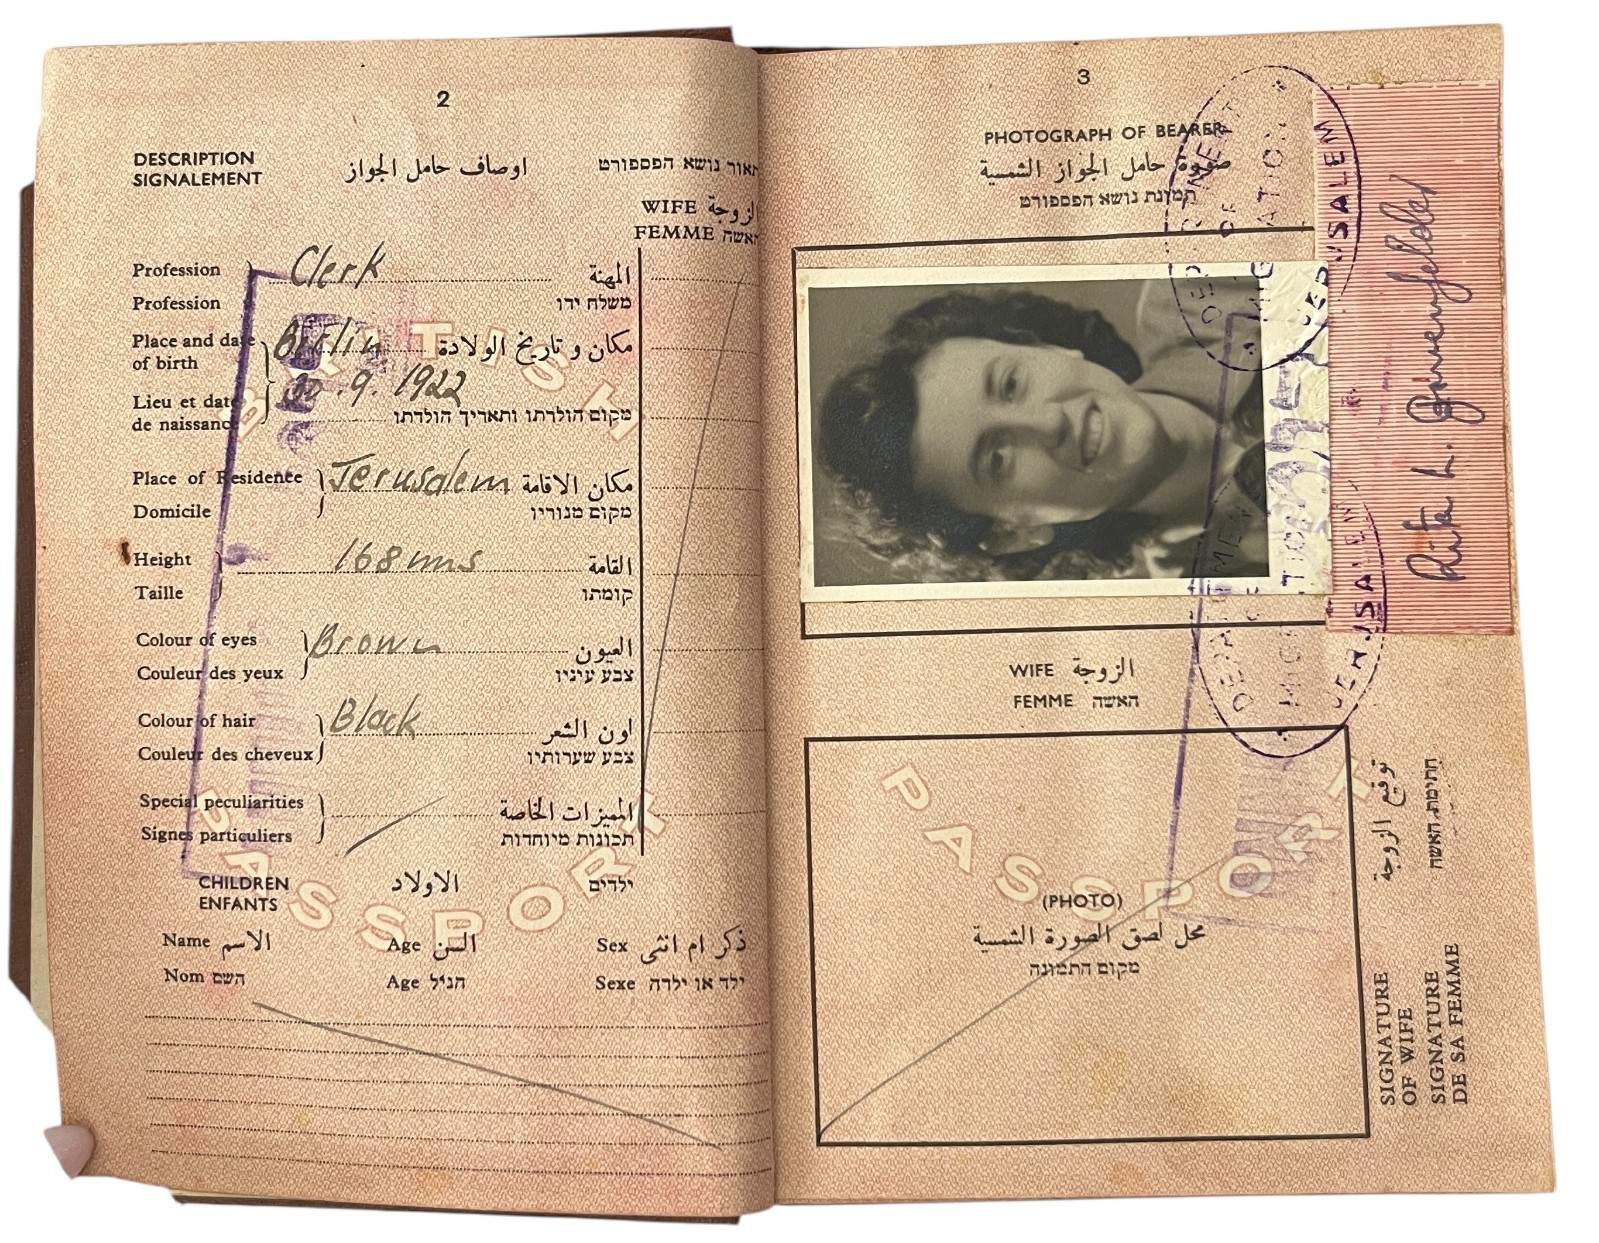 2
DESCRIPTION
SIGNALEMENT
اوصاف حامل الجواز
תאור נושא הפספורט
WIFE الزوجة
FEMME האשה
Profession Clerk المهنة
Profession משלח ידו
Place and date of birth Berlin مكان و تاريخ الولادة
.9.1922
Lieu et date de naissance מקום הולדתו ותאריך הולדתו
Place of Residence Jerusalem مكان الاقامة
Domicile מקום מגוריו
Height 168 cms القامة
Taille קומתו
Colour of eyes Brown العيون
Couleur des yeux צבע עיניו
Colour of hair Black لون الشعر
Couleur des cheveux צבע שערותיו
Special peculiarities المميزات الخاصة
Signes particuliers תכונות מיוחדות
CHILDREN الاولاد ילדים
ENFANTS
Name الاسم Age السن Sex ذكر ام انثى
Nom השם Age הגיל Sexe ילד או ילדה
BRITISH
PASSPORT
3
PHOTOGRAPH OF BEARER
صورة حامل الجواز الشمسية
תמונת נושא הפספורט
DEPARTMENT
OF
MIGRATION
JERUSALEM
Rita L.
WIFE الزوجة
FEMME האשה
DEPARTMENT
OF
MIGRATION
JERUSALEM
PASSPORT
(PHOTO)
محل لصق الصورة الشمسية
מקום התמונה
توقيع الزوجة
חתימת האשה
SIGNATURE
OF WIFE
SIGNATURE
DE SA FEMME